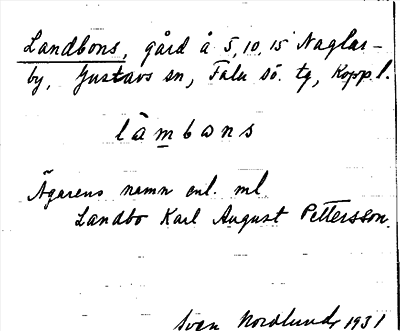 Landbons, gård å 5,10,15 Naglas-
by, Gustavs sn, Falu sö. tg, Kopp.l.
làmbɷns
Ägarens namn enl. ml
Landbo Karl August Pettersson.
Sven Nordlund 1931